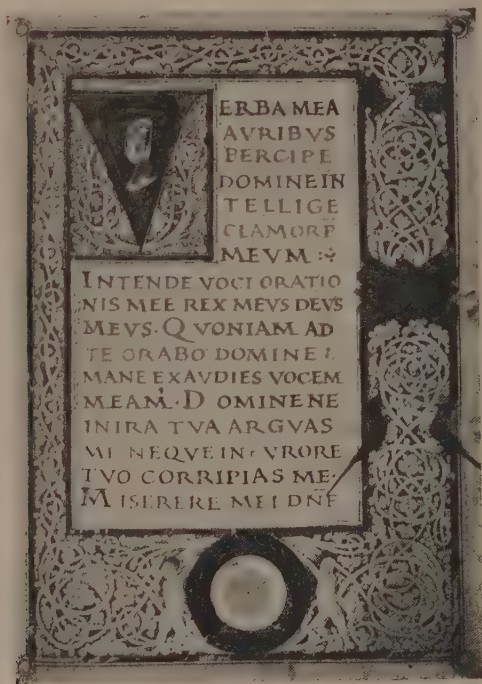 VERBA MEA
AVRIBVS
PERCIPE
DOMINE IN
TELLIGE
CLAMORĒ
MEVM
INTENDE VOCI ORATIO
NIS MEE REX MEVS DEVS
MEVS· QVONIAM AD
TE ORABO DOMINE
MANE EXAVDIES VOCEM
MEAM· DOMINE NE
IN IRA TVA ARGVAS
NEQVE IN
TVO CORRIPIAS ME·
MISERERE MEI DNE